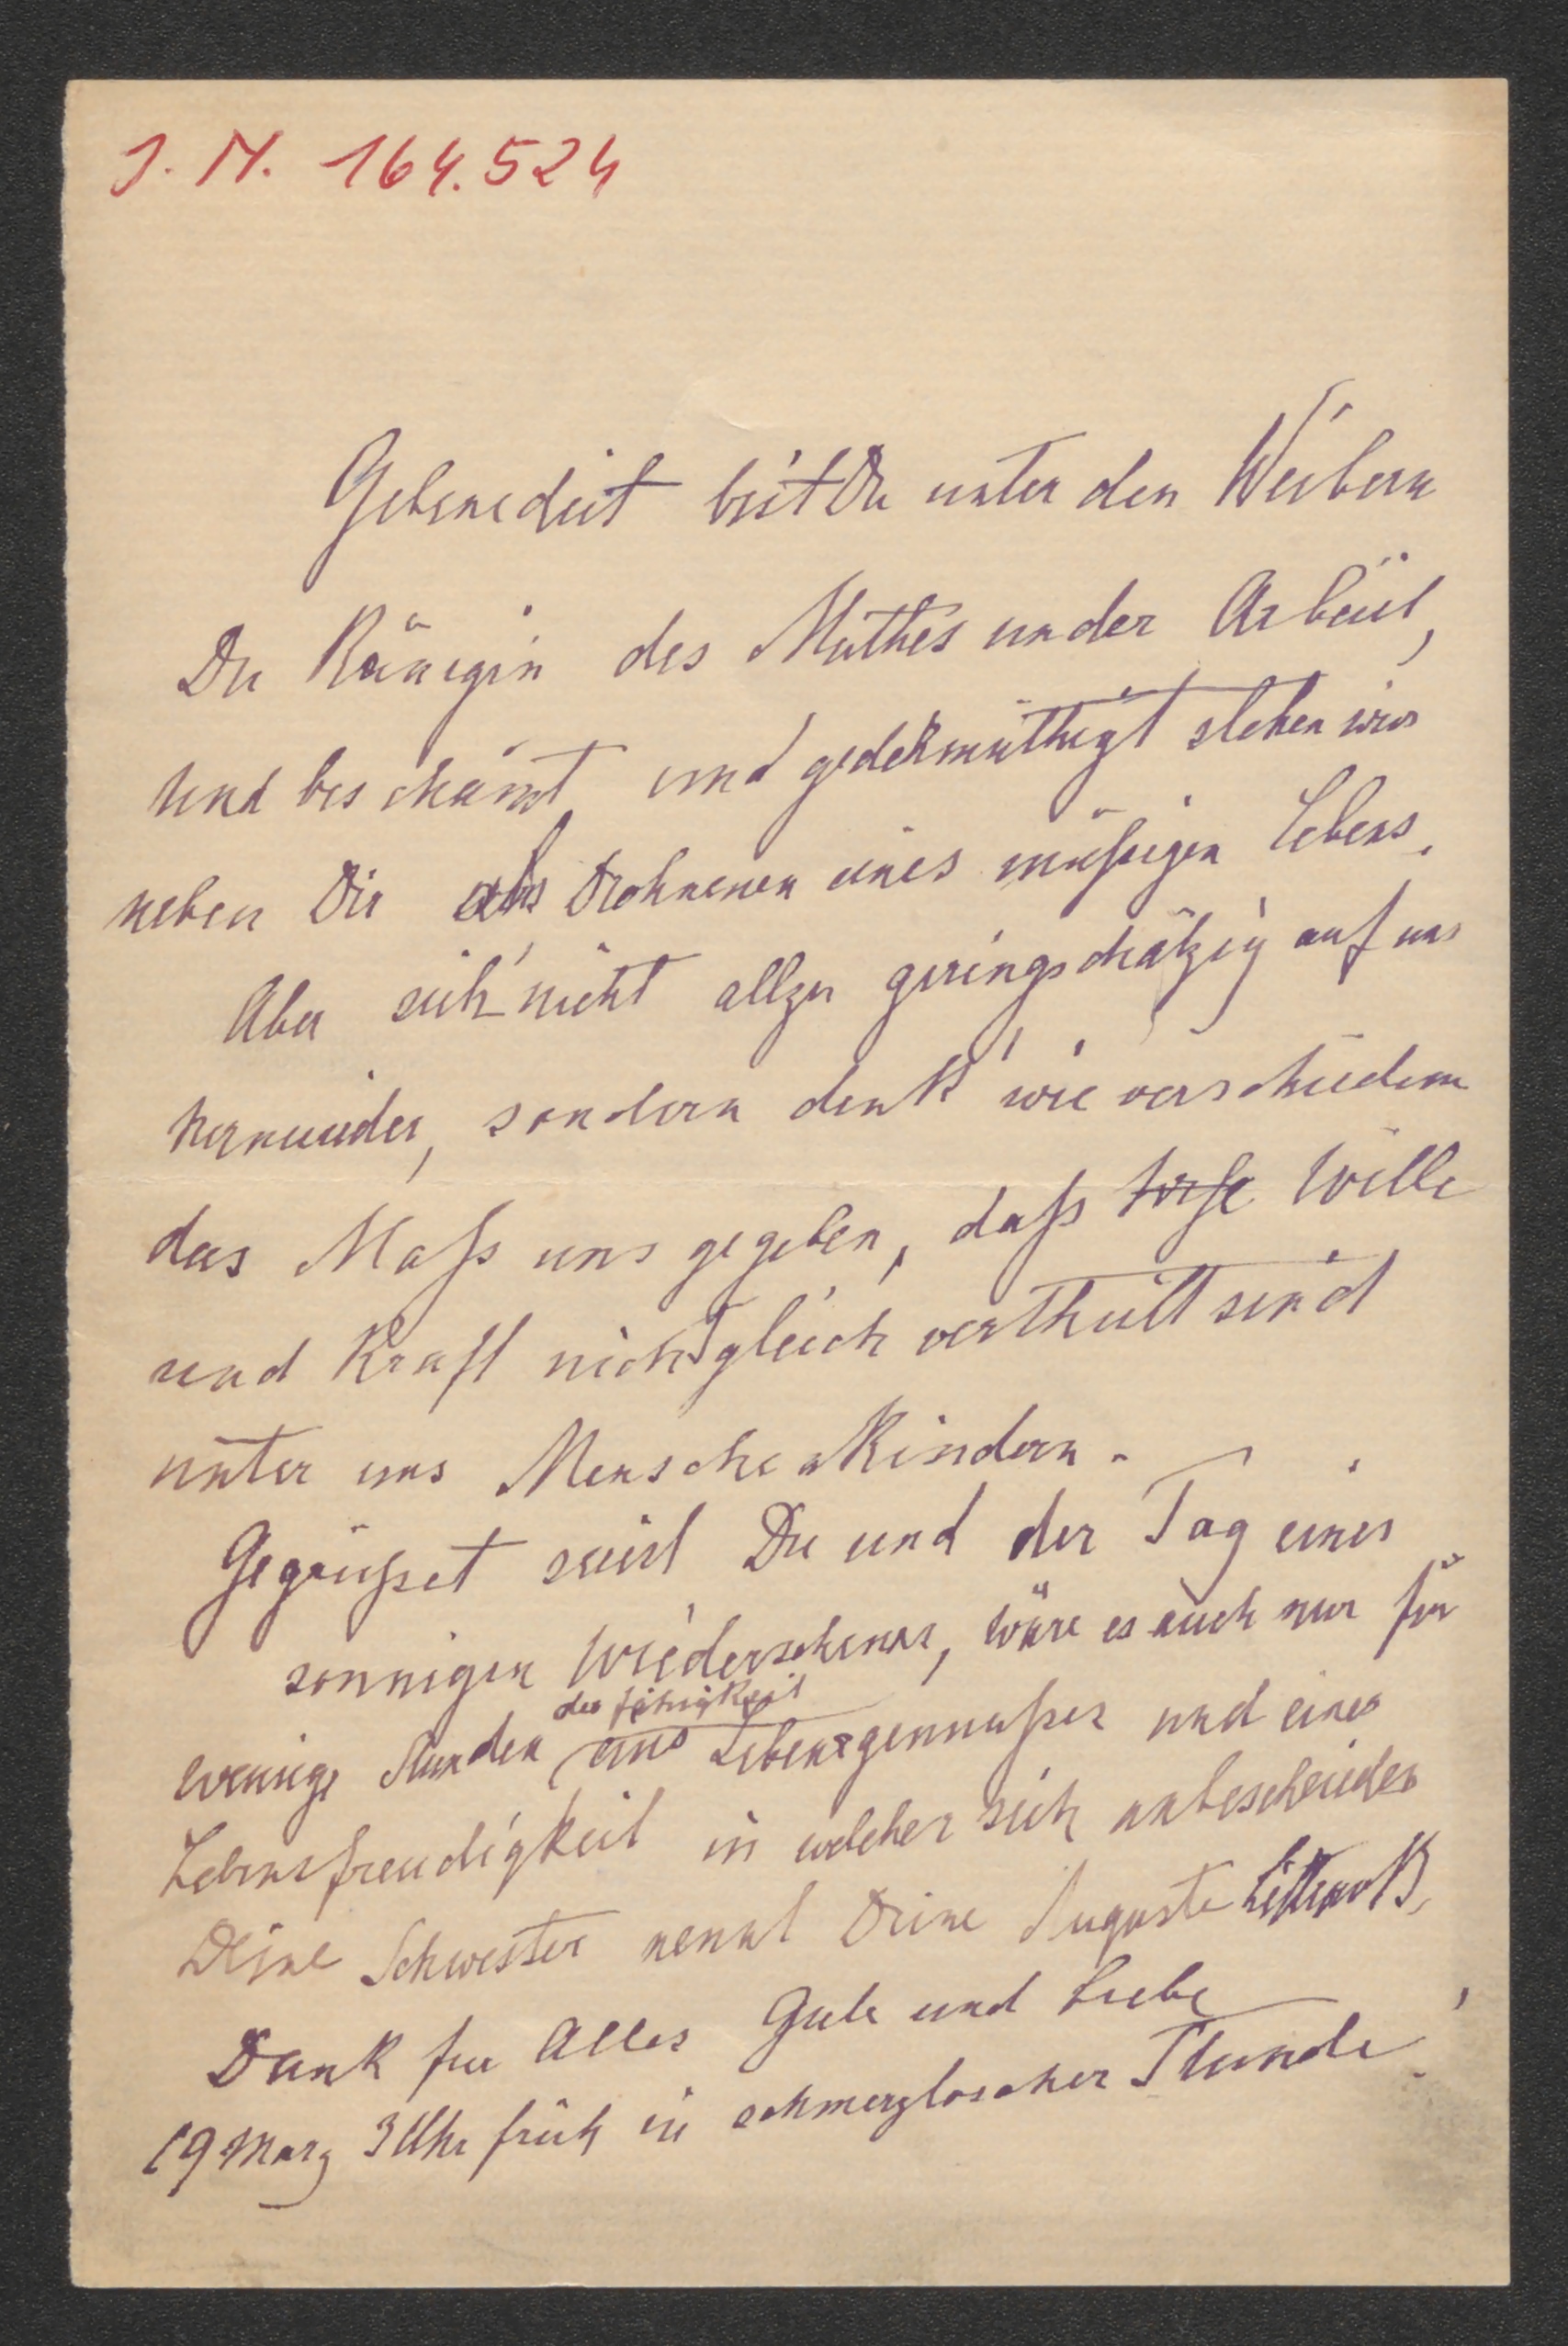 J. N. 164.524
Gebenedeit bist Du unter den Weibern
Du Königin des Muthes un der Arbeit,
und beschämt und gedehmüthigt stehen wir
neben Dir als Drohnenen eines müßigen Lebens.
Aber sieh' nicht allzu geringschätzig auf uns
hernieder, sondern denk' wie verschieden
das Maß uns gegeben, daß Wille
und Kraft nicht gleich vertheilt sind
unter uns Menschenkindern.
Gegrüßet seist Du und der Tag eines
sonnigen Wiedersehens, wäre es auch nur für
der Fähigkeit
wenige Stunden eines Lebensgennußes und einer
Lebensfreudigkeit in welcher sich unbescheiden
Deine Schwester nennt Deine Auguste
Dank für Alles Gute und Liebe
19 März 3 Uhr früh in schmerzloscher Stunde!